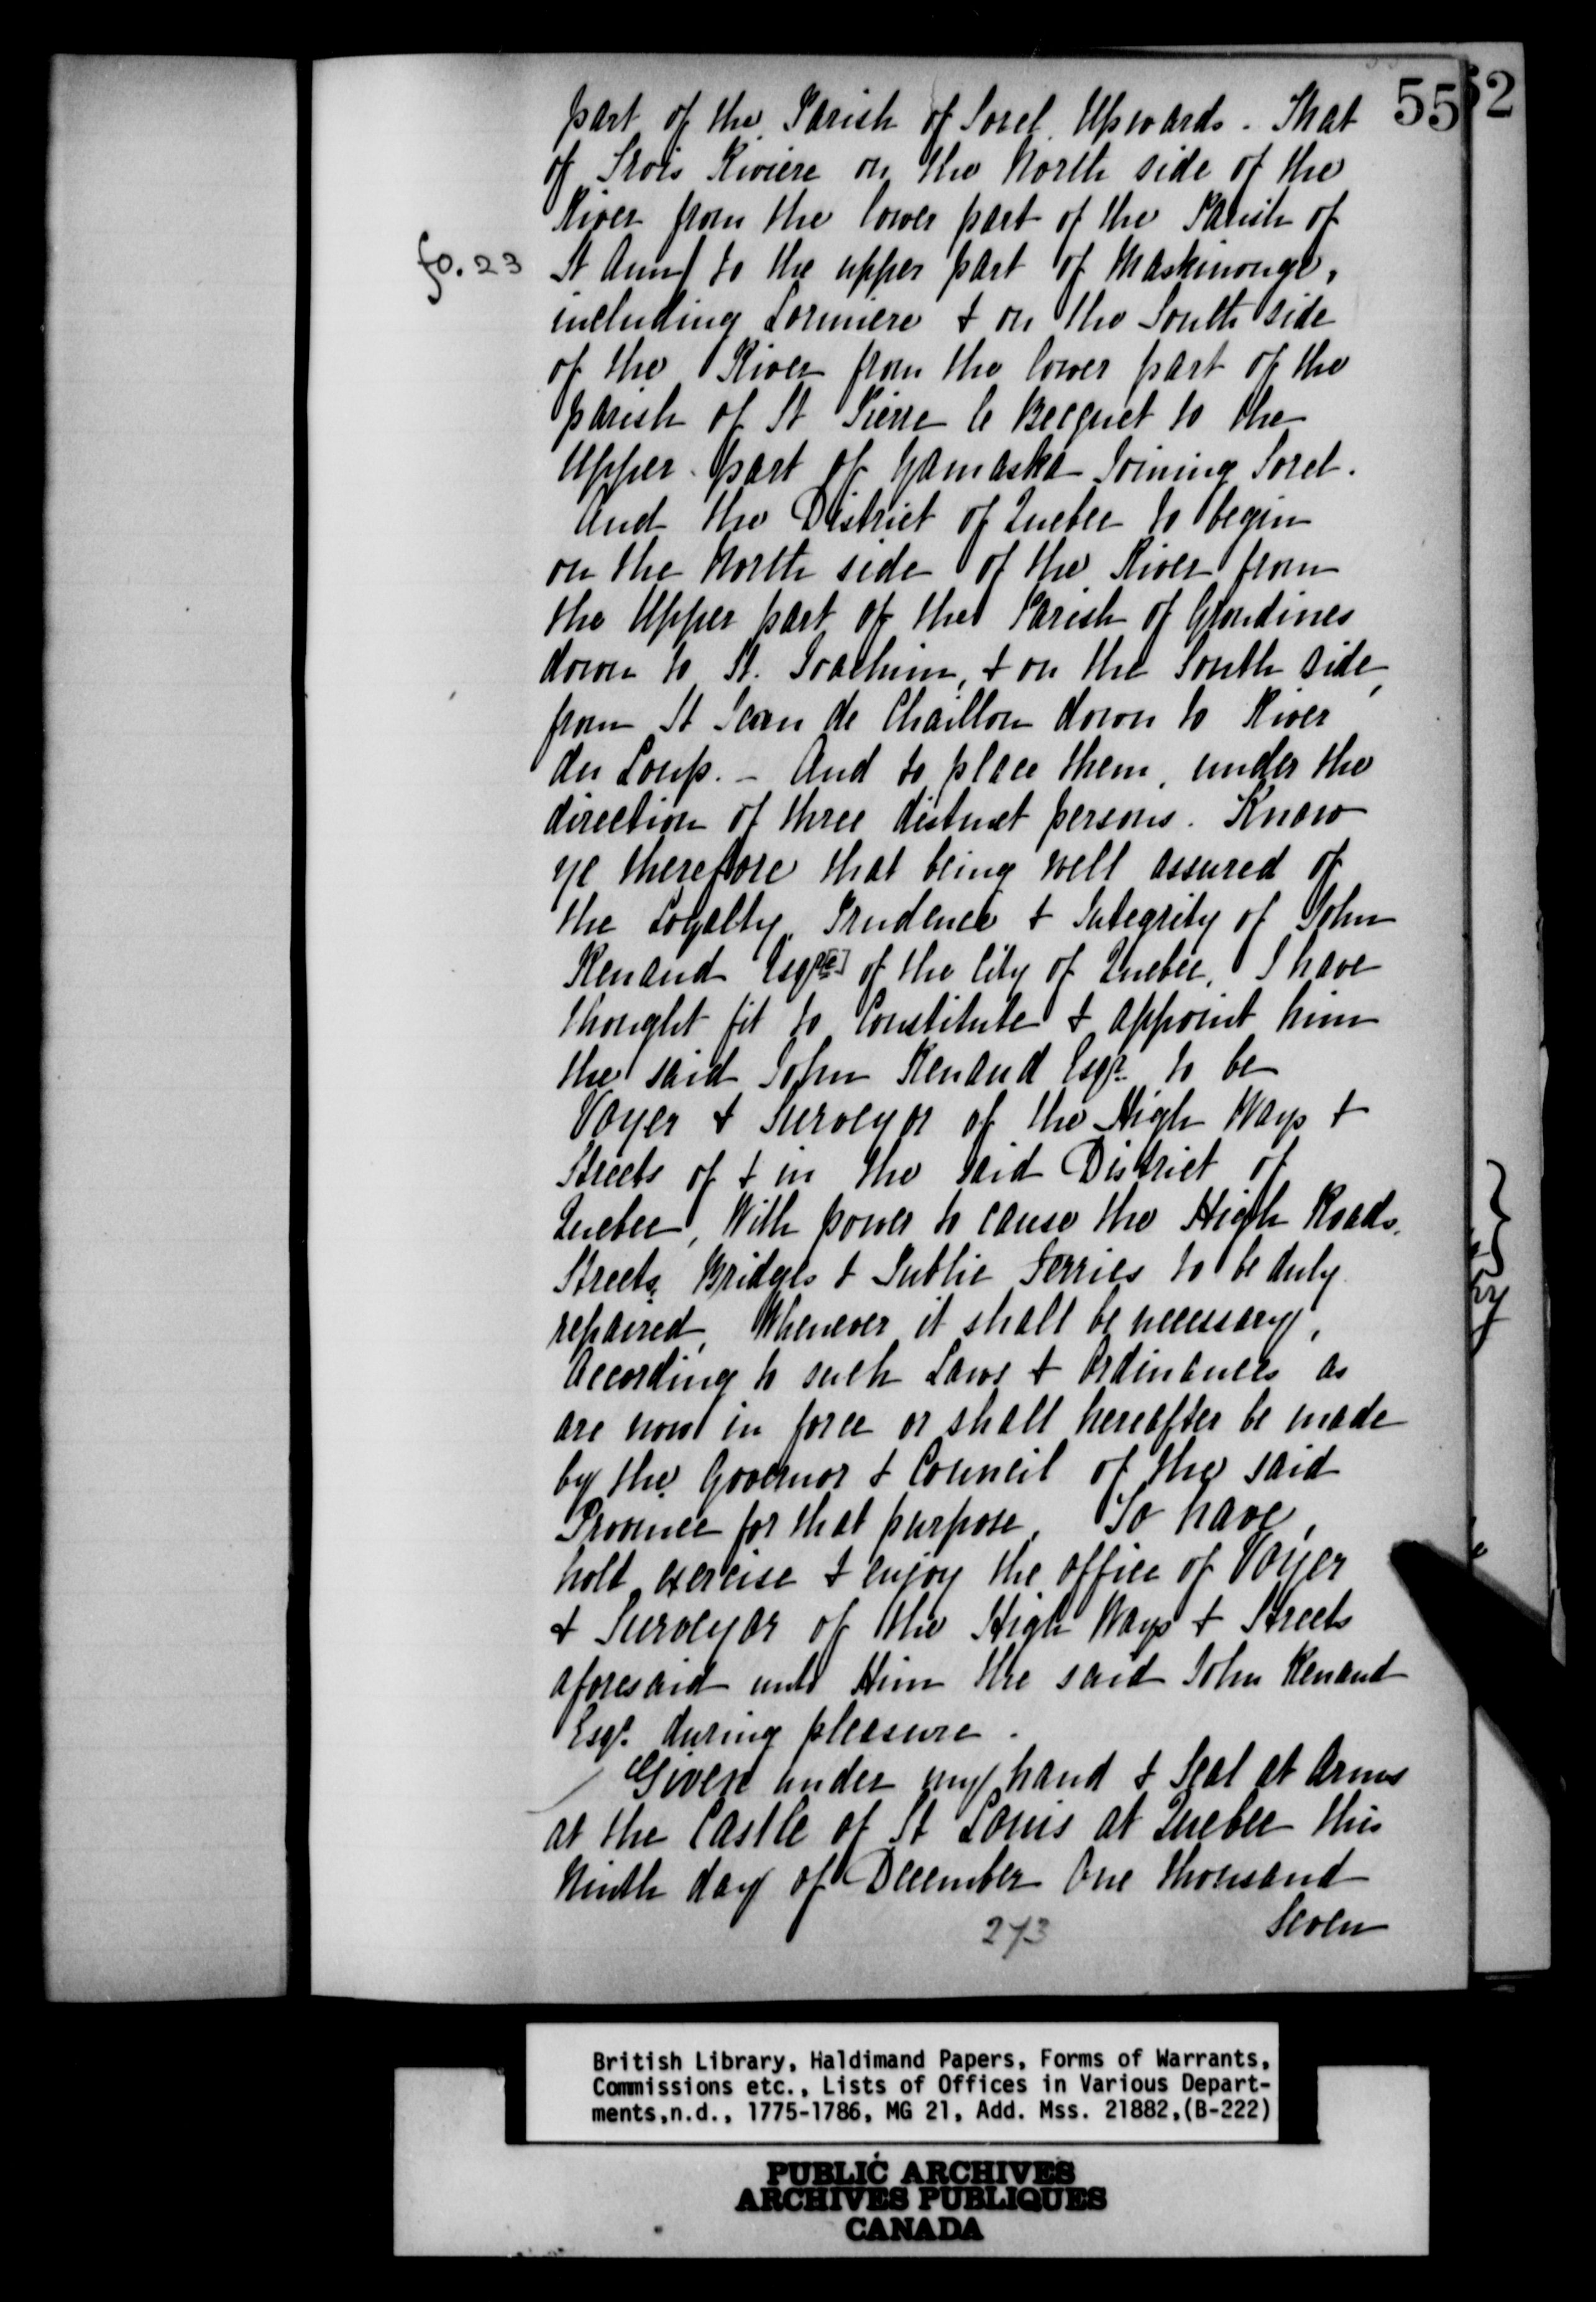 55
52
part of the Parish of Sorel Upwards. That
of Trois Riviere on the North side of the
River from the lower part of the Parish of
fo. 23
St Ann to the upper part of Maskinonge,
including Lormiere & on the South side
of the River from the lower part of the
parish of St Pierre le Becquet to the
Upper part of Yamaska Joining Sorel.
And the District of Quebec to begin
on the North side of the River from
the Upper part of the Parish of Grondines
down to St. Joachim, & on the South side,
from St Jean de Chaillon down to River
du Loup. - And to place them, under the
direction of three distinct persons. Know
ye therefore that being well assured of
the Loyalty, Prudence & Integrity of John
Renaud Esqr[e] of the City of Quebec, I have
thought fit to Constitute & appoint him
the said John Renaud Esqr. to be
Voyer & Surveyor of the High Ways &
Streets of & in the said District of
Quebec, With power to cause the High Roads,
Streets, Bridges & Public Ferries to be duly
repaired, Whenever it shall be necessary,
According to such Laws & Ordinances as
are now in force or shall hereafter be made
by the Governor & Council of the said
Province for that purpose, To have,
hold, exercise & enjoy the office of Voyer
& Surveyor of the High Ways & Streets
aforesaid unto Him the said John Renaud
Esqr. during pleasure.
Given under my hand & Seal at Arms
at the Castle of St Louis at Quebec this
Ninth day of December One thousand
Seven
273
British Library, Haldimand Papers, Forms of Warrants,
Commissions etc., Lists of Offices in Various Depart-
ments,n.d., 1775-1786, MG 21, Add. Mss. 21882,(B-222)
PUBLIC ARCHIVES
ARCHIVES PUBLIQUES
CANADA